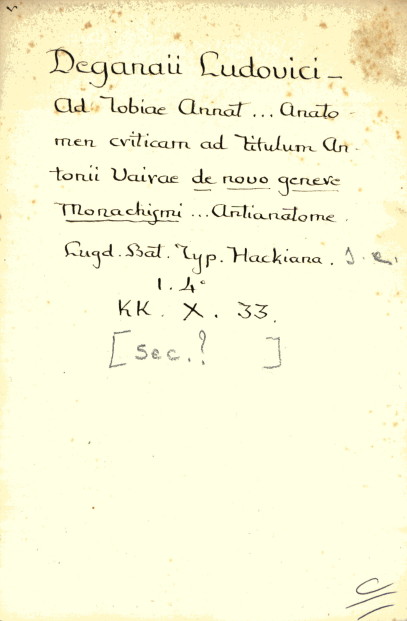 Deganaii Ludovici –
Ad Tobiae Annat ... Anato-
men criticam ad titulum An-
tonii Vairae de novo genere
Monachismi ... Antianatome.
Lugd. Bat. Typ. Hackiana. s. a.
1. 4°
KK. X. 33.
[sec.? ]
C